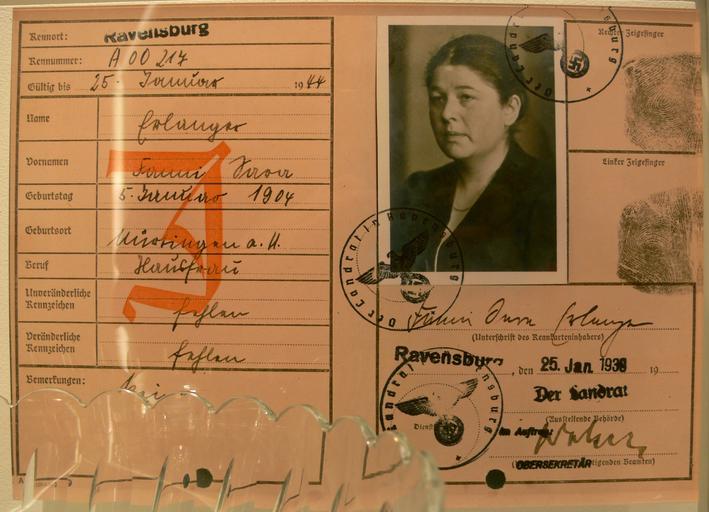 Kennort: Ravensburg
Kennummer: A 00 217
Gültig bis 25. Januar 1944
Name Erlanger
Vornamen Fanni Sara
Geburtstag 5. Januar 1904
Geburtsort Nürtingen a. N.
Beruf Hausfrau
Unveränderliche Kennzeichen fehlen
Veränderliche Kennzeichen fehlen
Bemerkungen:
J
Der Landrat in Ravensburg
Rechter Zeigefinger
Linker Zeigefinger
Der Landrat in Ravensburg
Fanni Sara Erlanger
(Unterschrift des Kennkarteninhabers)
Ravensburg, den 25. Jan 1939 19
Der Landrat
(Ausstellende Behörde)
Landrat Ravensburg
Dienst
Im Auftrag:
OBERSEKRETÄR